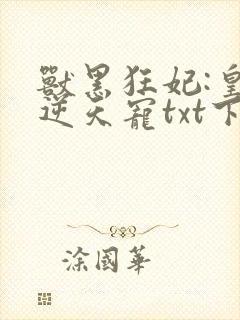 獸黑狂妃:皇
逆天寵txt下
涂國華